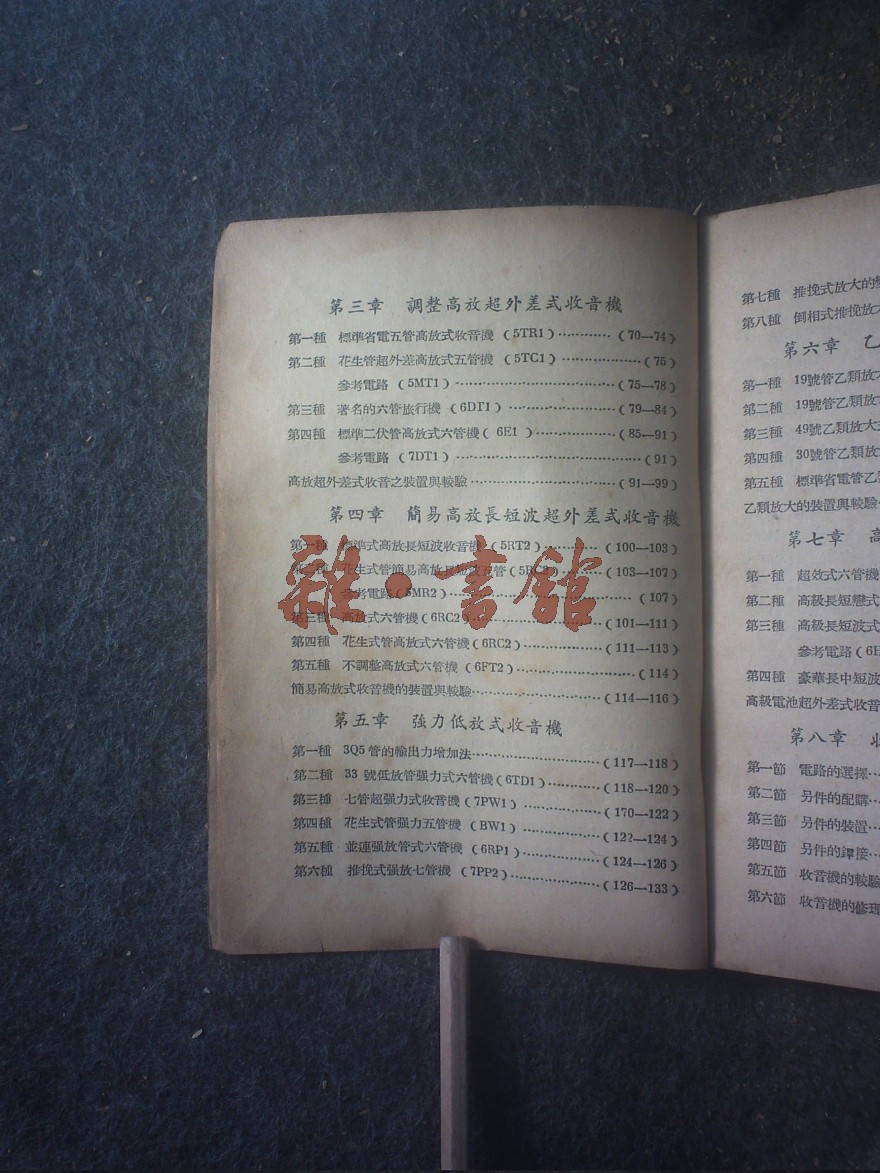 第三章　調整高放超外差式收音機
第一種　標準省電五管高放式收音機（5TR1）…………（70—74）
第二種　花生管超外差高放式五管機（5TC1）…………（75）
參考電路（5MT1）…………（75—78）
第三種　著名的六管旅行機（6DT1）…………（79—84）
第四種　標準二伏管高放式六管機（6E1）…………（85—91）
參考電路（7DT1）…………（91）
高放超外差式收音之裝置與較驗…………（91—99）
第四章　簡易高放長短波超外差式收音機
第一種　標準式高放長短波收音機（5RT2）…………（100—103）
第二種　花生式管簡易高放長短波五管（5RC2）…………（103—107）
參考電路（5MR2）…………（107）
第三種　高放式六管機（6RC2）…………（101—111）
第四種　花生式管高放式六管機（6RC2）…………（111—113）
第五種　不調整高放式六管機（6FT2）…………（114）
簡易高放式收音機的裝置與較驗…………（114—116）
第五章　強力低放式收音機
第一種　3Q5管的輸出力增加法…………（117—118）
第二種　33號低放管强力式六管機（6TD1）…………（118—120）
第三種　七管超强力式收音機（7PW1）…………（170—122）
第四種　花生式管强力五管機（BW1）…………（122—124）
第五種　並連强放管式六管機（6RP1）…………（124—126）
第六種　推挽式强放七管機（7PP2）…………（126—133）
雜·書館
第七種　推挽式放大的
第八種　倒相式推挽放
第六章　乙
第一種　19號管乙類放
第二種　19號管乙類放
第三種　49號乙類放大
第四種　30號管乙類放
第五種　標準省電管乙
乙類放大的裝置與較驗
第七章　高
第一種　超效式六管機
第二種　高級長短戀式
第三種　高級長短波式
參考電路（6
第四種　豪華長中短波
高級電池超外差式收音
第八章　收
第一節　電路的選擇…
第二節　另件的配購…
第三節　另件的裝置…
第四節　另件的鐸接…
第五節　收音機的較驗
第六節　收音機的修理